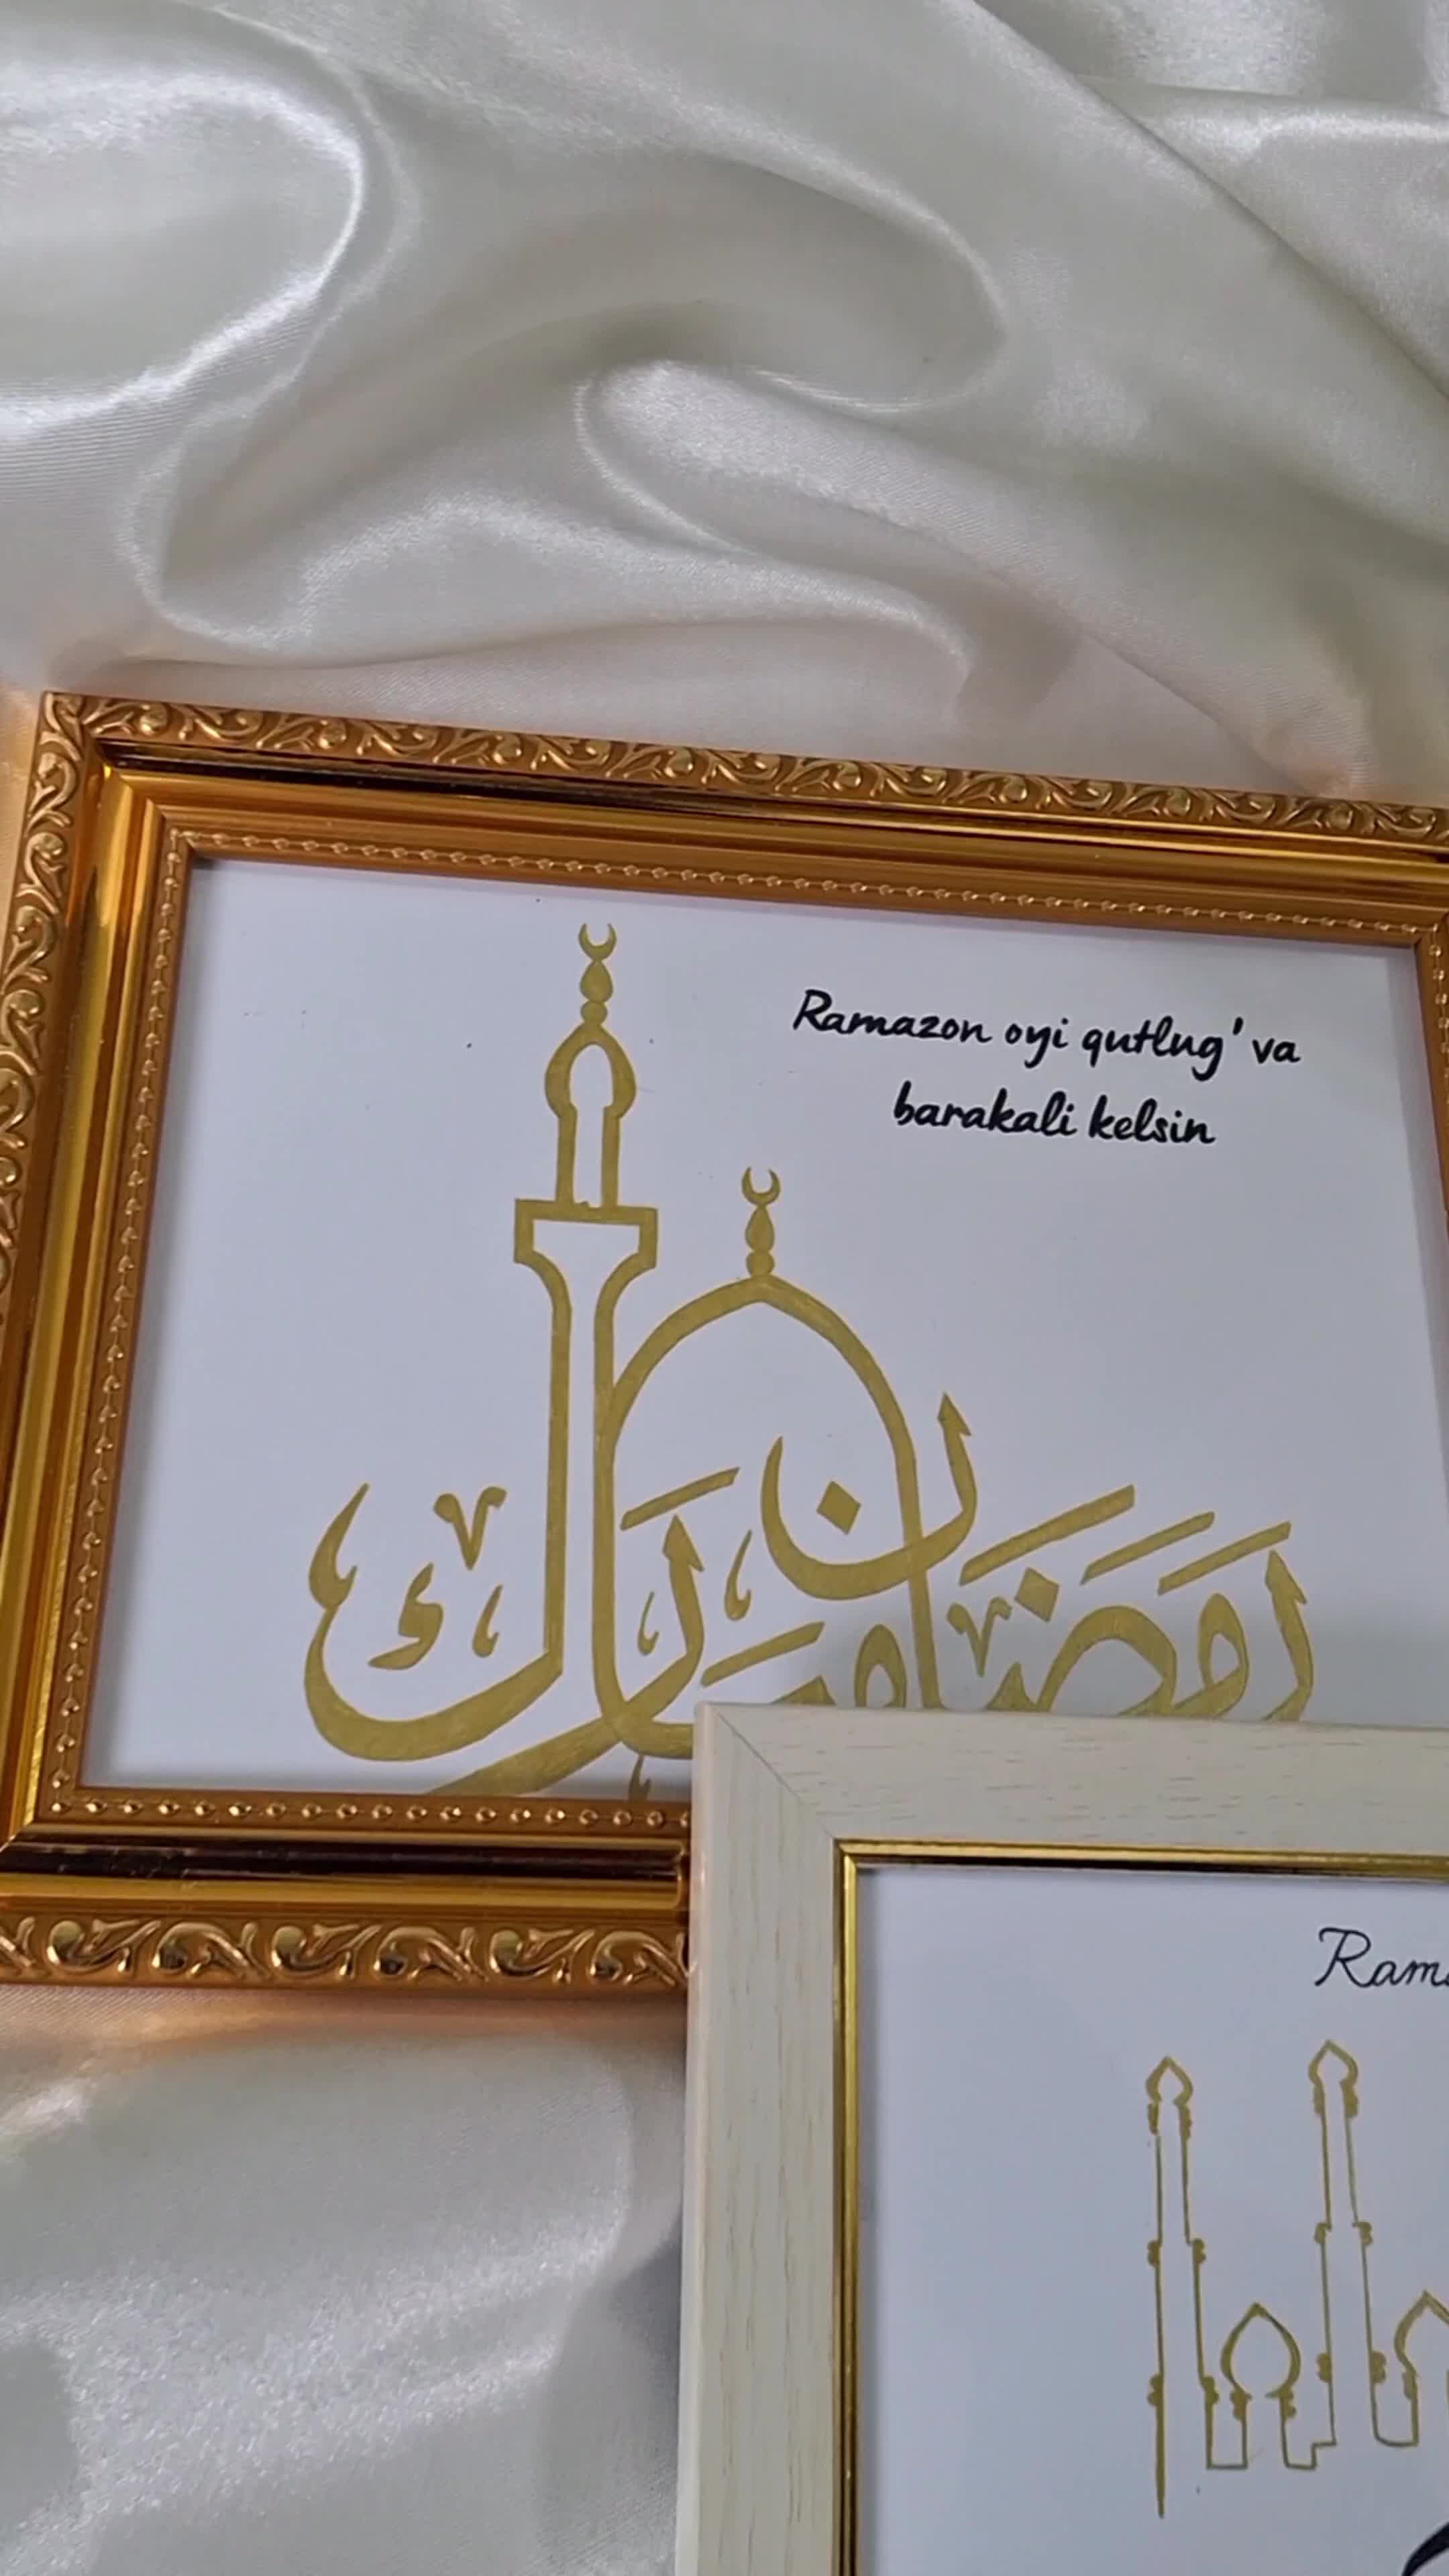 Ramazon oyi qutlug' va
barakali kelsin
رمضان
مبارك